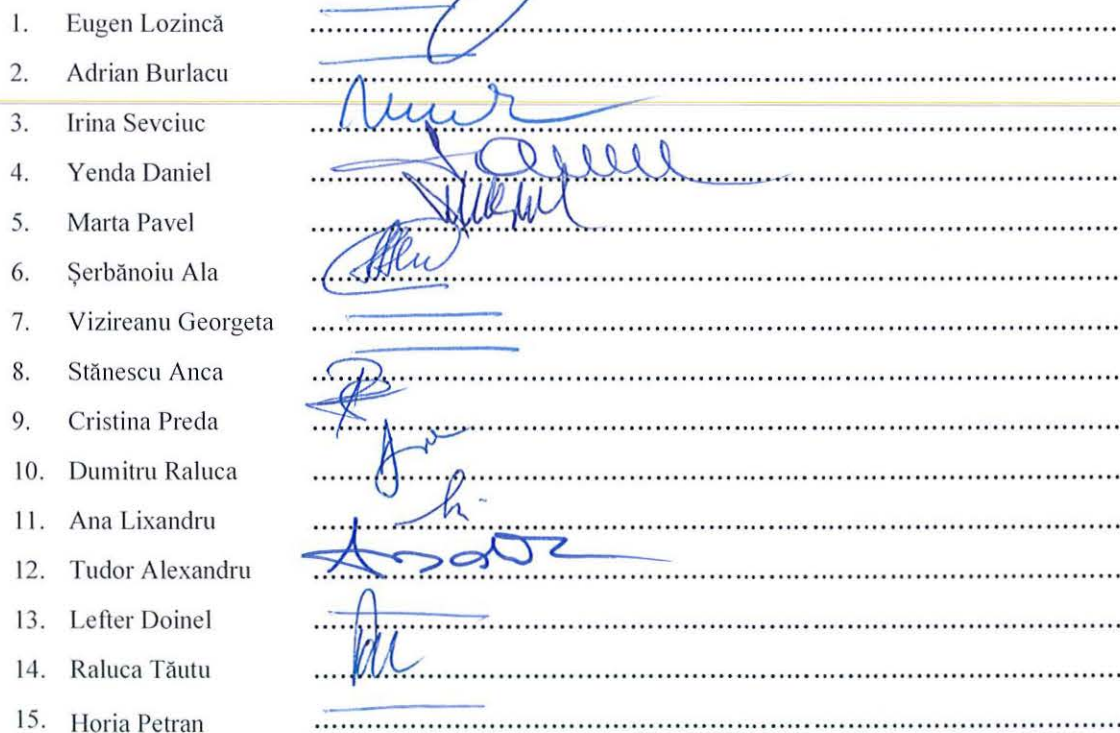 1. Eugen Lozincă
2. Adrian Burlacu
3. Irina Sevciuc
4. Yenda Daniel
5. Marta Pavel
6. Șerbănoiu Ala
7. Vizireanu Georgeta
8. Stănescu Anca
9. Cristina Preda
10. Dumitru Raluca
11. Ana Lixandru
12. Tudor Alexandru
13. Lefter Doinel
14. Raluca Tăutu
15. Horia Petran